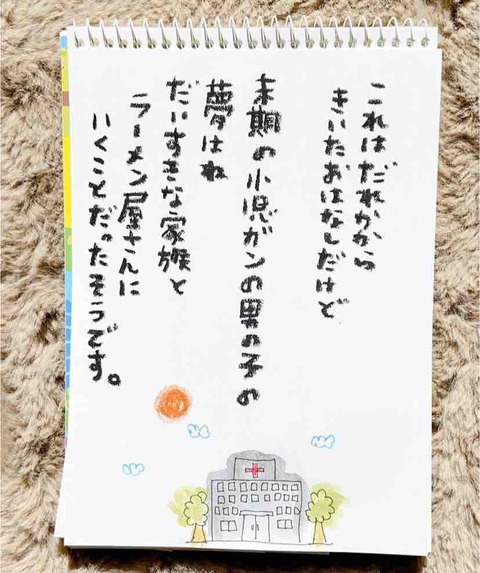 これはだれかから
きいたおはなしだけど
末期の小児ガンの男の子の
夢はね
だいすきな家族と
ラーメン屋さんに
いくことだったそうです。